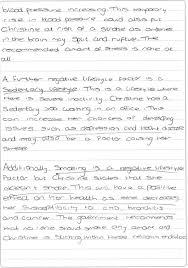 blood pressure increasing. This temporary
rise in blood pressure could also put
Christine at risk of a stroke as arteries
in the brain may split and rupture. The
recommended amount of stress is none at
all.
A further negative lifestyle factor is a
Sedentary lifestyle. This is a lifestyle where
there is severe inactivity. Christine has a
sedentary job working in an office. This
can increase her chances of developing
issues such as depression and heart disease
and may also be a factor causing her
stress.
Additionally, Smoking is a negative lifestyle
factor but Christine states that she
doesn't smoke. This will have a positive
effect on her health as it decreases
her susceptibility to CHD, bronchitis
and cancer. The government recommends
that no one should smoke any amount and
Christine is within these recommended